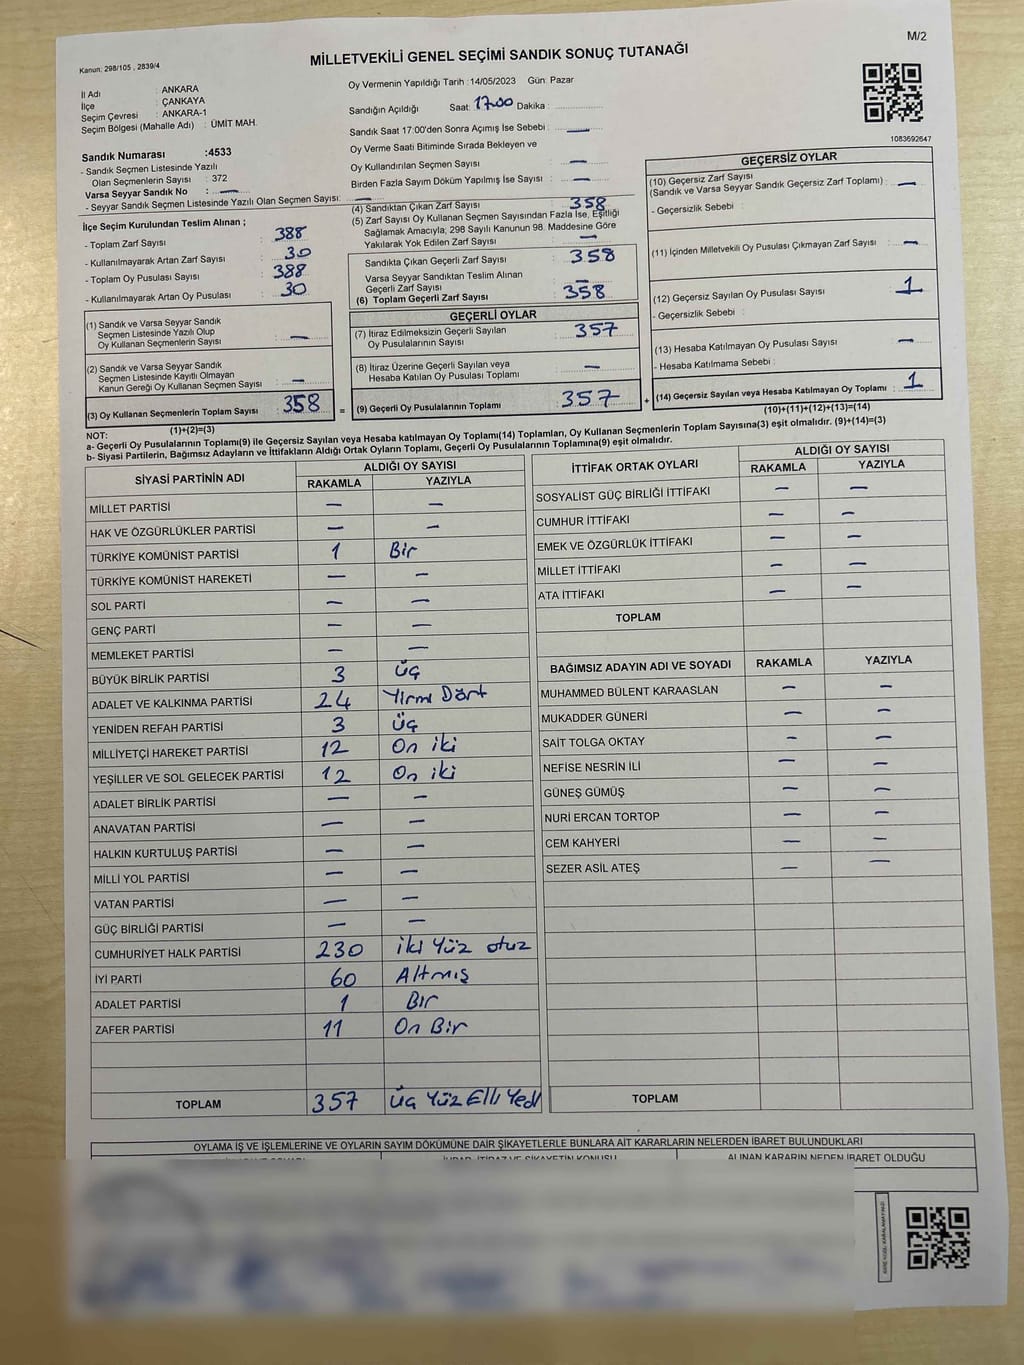 M/2
Kanun: 298/105 , 2839/4
MİLLETVEKİLİ GENEL SEÇİMİ SANDIK SONUÇ TUTANAĞI
1083692647
İl Adı : ANKARA
İlçe : ÇANKAYA
Seçim Çevresi : ANKARA-1
Seçim Bölgesi (Mahalle Adı) : ÜMİT MAH.
Sandık Numarası :4533
- Sandık Seçmen Listesinde Yazılı
Olan Seçmenlerin Sayısı : 372
Varsa Seyyar Sandık No : —
- Seyyar Sandık Seçmen Listesinde Yazılı Olan Seçmen Sayısı: —
Oy Vermenin Yapıldığı Tarih :14/05/2023 Gün: Pazar
Sandığın Açıldığı Saat: 17.00 Dakika :
Sandık Saat 17:00'den Sonra Açımış İse Sebebi : —
Oy Verme Saati Bitiminde Sırada Bekleyen ve
Oy Kullandırılan Seçmen Sayısı : —
Birden Fazla Sayım Döküm Yapılmış İse Sayısı : —
İlçe Seçim Kurulundan Teslim Alınan ;
- Toplam Zarf Sayısı : 388
- Kullanılmayarak Artan Zarf Sayısı : 30
- Toplam Oy Pusulası Sayısı : 388
- Kullanılmayarak Artan Oy Pusulası : 30
(1) Sandık ve Varsa Seyyar Sandık
Seçmen Listesinde Yazılı Olup
Oy Kullanan Seçmenlerin Sayısı : —
(2) Sandık ve Varsa Seyyar Sandık
Seçmen Listesinde Kayıtlı Olmayan
Kanun Gereği Oy Kullanan Seçmen Sayısı : —
(3) Oy Kullanan Seçmenlerin Toplam Sayısı : 358
(1)+(2)=(3)
(4) Sandıktan Çıkan Zarf Sayısı : 358
(5) Zarf Sayısı Oy Kullanan Seçmen Sayısından Fazla İse, Eşitliği
Sağlamak Amacıyla, 298 Sayılı Kanunun 98. Maddesine Göre
Yakılarak Yok Edilen Zarf Sayısı : —
Sandıkta Çıkan Geçerli Zarf Sayısı : 358
Varsa Seyyar Sandıktan Teslim Alınan
Geçerli Zarf Sayısı : —
(6) Toplam Geçerli Zarf Sayısı : 358
GEÇERLİ OYLAR
(7) İtiraz Edilmeksizin Geçerli Sayılan
Oy Pusulalarının Sayısı : 357
(8) İtiraz Üzerine Geçerli Sayılan veya
Hesaba Katılan Oy Pusulası Toplamı : —
= (9) Geçerli Oy Pusulalarının Toplamı : 357 +
GEÇERSİZ OYLAR
(10) Geçersiz Zarf Sayısı
(Sandık ve Varsa Seyyar Sandık Geçersiz Zarf Toplamı) : —
- Geçersizlik Sebebi :
(11) İçinden Milletvekili Oy Pusulası Çıkmayan Zarf Sayısı : —
(12) Geçersiz Sayılan Oy Pusulası Sayısı : 1
- Geçersizlik Sebebi :
(13) Hesaba Katılmayan Oy Pusulası Sayısı : —
- Hesaba Katılmama Sebebi :
(14) Geçersiz Sayılan veya Hesaba Katılmayan Oy Toplamı : 1
(10)+(11)+(12)+(13)=(14)
NOT:
a- Geçerli Oy Pusulalarının Toplamı(9) ile Geçersiz Sayılan veya Hesaba katılmayan Oy Toplamı(14) Toplamları, Oy Kullanan Seçmenlerin Toplam Sayısına(3) eşit olmalıdır. (9)+(14)=(3)
b- Siyasi Partilerin, Bağımsız Adayların ve İttifakların Aldığı Ortak Oyların Toplamı, Geçerli Oy Pusulalarının Toplamına(9) eşit olmalıdır.
SİYASİ PARTİNİN ADI ALDIĞI OY SAYISI
RAKAMLA YAZIYLA
MİLLET PARTİSİ — —
HAK VE ÖZGÜRLÜKLER PARTİSİ — —
TÜRKİYE KOMÜNİST PARTİSİ 1 Bir
TÜRKİYE KOMÜNİST HAREKETİ — —
SOL PARTİ — —
GENÇ PARTİ — —
MEMLEKET PARTİSİ — —
BÜYÜK BİRLİK PARTİSİ 3 üç
ADALET VE KALKINMA PARTİSİ 24 Yirmi Dört
YENİDEN REFAH PARTİSİ 3 üç
MİLLİYETÇİ HAREKET PARTİSİ 12 On iki
YEŞİLLER VE SOL GELECEK PARTİSİ 12 On iki
ADALET BİRLİK PARTİSİ — —
ANAVATAN PARTİSİ — —
HALKIN KURTULUŞ PARTİSİ — —
MİLLİ YOL PARTİSİ — —
VATAN PARTİSİ — —
GÜÇ BİRLİĞİ PARTİSİ — —
CUMHURİYET HALK PARTİSİ 230 iki Yüz otuz
İYİ PARTİ 60 Altmış
ADALET PARTİSİ 1 Bir
ZAFER PARTİSİ 11 On Bir
TOPLAM 357 üç Yüz Elli Yedi
İTTİFAK ORTAK OYLARI ALDIĞI OY SAYISI
RAKAMLA YAZIYLA
SOSYALİST GÜÇ BİRLİĞİ İTTİFAKI — —
CUMHUR İTTİFAKI — —
EMEK VE ÖZGÜRLÜK İTTİFAKI — —
MİLLET İTTİFAKI — —
ATA İTTİFAKI — —
TOPLAM
BAĞIMSIZ ADAYIN ADI VE SOYADI RAKAMLA YAZIYLA
MUHAMMED BÜLENT KARAASLAN — —
MUKADDER GÜNERİ — —
SAİT TOLGA OKTAY — —
NEFİSE NESRİN İLİ — —
GÜNEŞ GÜMÜŞ — —
NURİ ERCAN TORTOP — —
CEM KAHYERİ — —
SEZER ASİL ATEŞ — —
TOPLAM
OYLAMA İŞ VE İŞLEMLERİNE VE OYLARIN SAYIM DÖKÜMÜNE DAİR ŞİKAYETLERLE BUNLARA AİT KARARLARIN NELERDEN İBARET BULUNDUKLARI
İHBAR, İTİRAZ VE ŞİKAYETİN KONUSU ALINAN KARARIN NEDEN İBARET OLDUĞU